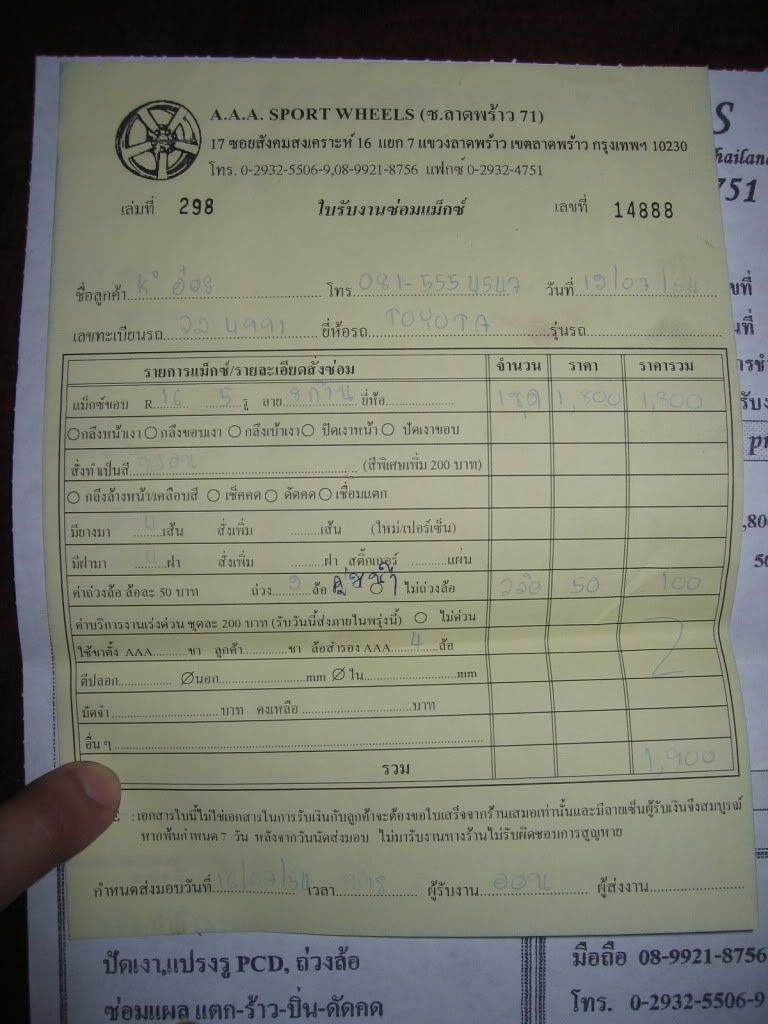 A.A.A. SPORT WHEELS (ซ.ลาดพร้าว 71)
17 ซอยสังคมสงเคราะห์ 16 แยก 7 แขวงลาดพร้าว เขตลาดพร้าว กรุงเทพฯ 10230
โทร. 0-2932-5506-9,08-9921-8756 แฟกซ์ 0-2932-4751
เล่มที่ 298 ใบรับงานซ่อมแม็กซ์ เลขที่ 14888
ชื่อลูกค้า โทร 081-555 4547 วันที่ /07/54
เลขทะเบียนรถ 4991 ยี่ห้อรถ TOYOTA รุ่นรถ
รายการแม็กซ์/รายละเอียดสั่งซ่อม จำนวน ราคา ราคารวม
แม็กซ์ขอบ R 16 5 รู ลาย 8 ก้าน ยี่ห้อ 1 ชุด 1,800 1,800
กลึงหน้าเงา กลึงขอบเงา กลึงเบ้าเงา ปัดเงาหน้า ปัดเงาขอบ
สั่งทำเป็นสี (สีพิเศษเพิ่ม 200 บาท)
กลึงล้างหน้า/เคลือบสี เช็คคด ดัดคด เชื่อมแตก
มียางมา 4 เส้น สั่งเพิ่ม เส้น (ใหม่/เปอร์เซ็น)
มีฝามา 4 ฝา สั่งเพิ่ม ฝา สติ๊กเกอร์ แผ่น
ค่าถ่วงล้อ ล้อละ 50 บาท ถ่วง ล้อ คู่หน้า ไม่ถ่วงล้อ 2ล้อ 50 100
ค่าบริการงานเร่งด่วน ชุดละ 200 บาท (รับวันนี้ส่งภายในพรุ่งนี้) ไม่ด่วน
ใช้ขาตั้ง AAA ขา ลูกค้า ขา ล้อสำรอง AAA 4 ล้อ
ตีปลอก Ø นอก mm Ø ใน mm
มัดจำ บาท คงเหลือ บาท
อื่น ๆ
รวม 1,900
E : เอกสารใบนี้ไม่ใช่เอกสารในการรับเงินกับลูกค้าจะต้องขอใบเสร็จจากร้านเสมอเท่านั้นและมีลายเซ็นผู้รับเงินจึงสมบูรณ์
หากพ้นกำหนด 7 วัน หลังจากวันนัดส่งมอบ ไม่มารับงานทางร้านไม่รับผิดชอบการสูญหาย
กำหนดส่งมอบวันที่ /07/54 เวลา ผู้รับงาน ผู้ส่งงาน
ปัดเงา,แปรงรู PCD, ถ่วงล้อ มือถือ 08-9921-8756
ซ่อมแผล แตก-ร้าว-บิ่น-ดัดคด โทร. 0-2932-5506-9